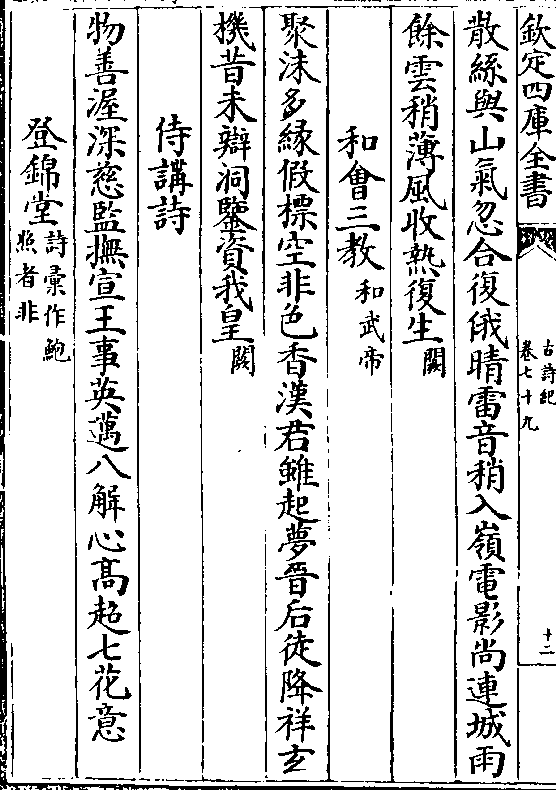 欽定四庫全書
古詩紀
卷七十九
十二
散絲與山氣忽合復俄晴雷音稍入嶺電影尚連城雨
餘雲稍薄風收熱復生闕
和會三教和武帝
聚沫多緣假標空非色香漢君雖起夢晉后徒降祥玄
機昔未辯洞鑒資我皇闕
侍講詩
物善渥深慈監撫宣王事英邁八解心高超七花意
登錦堂詩彙作鮑
照者非